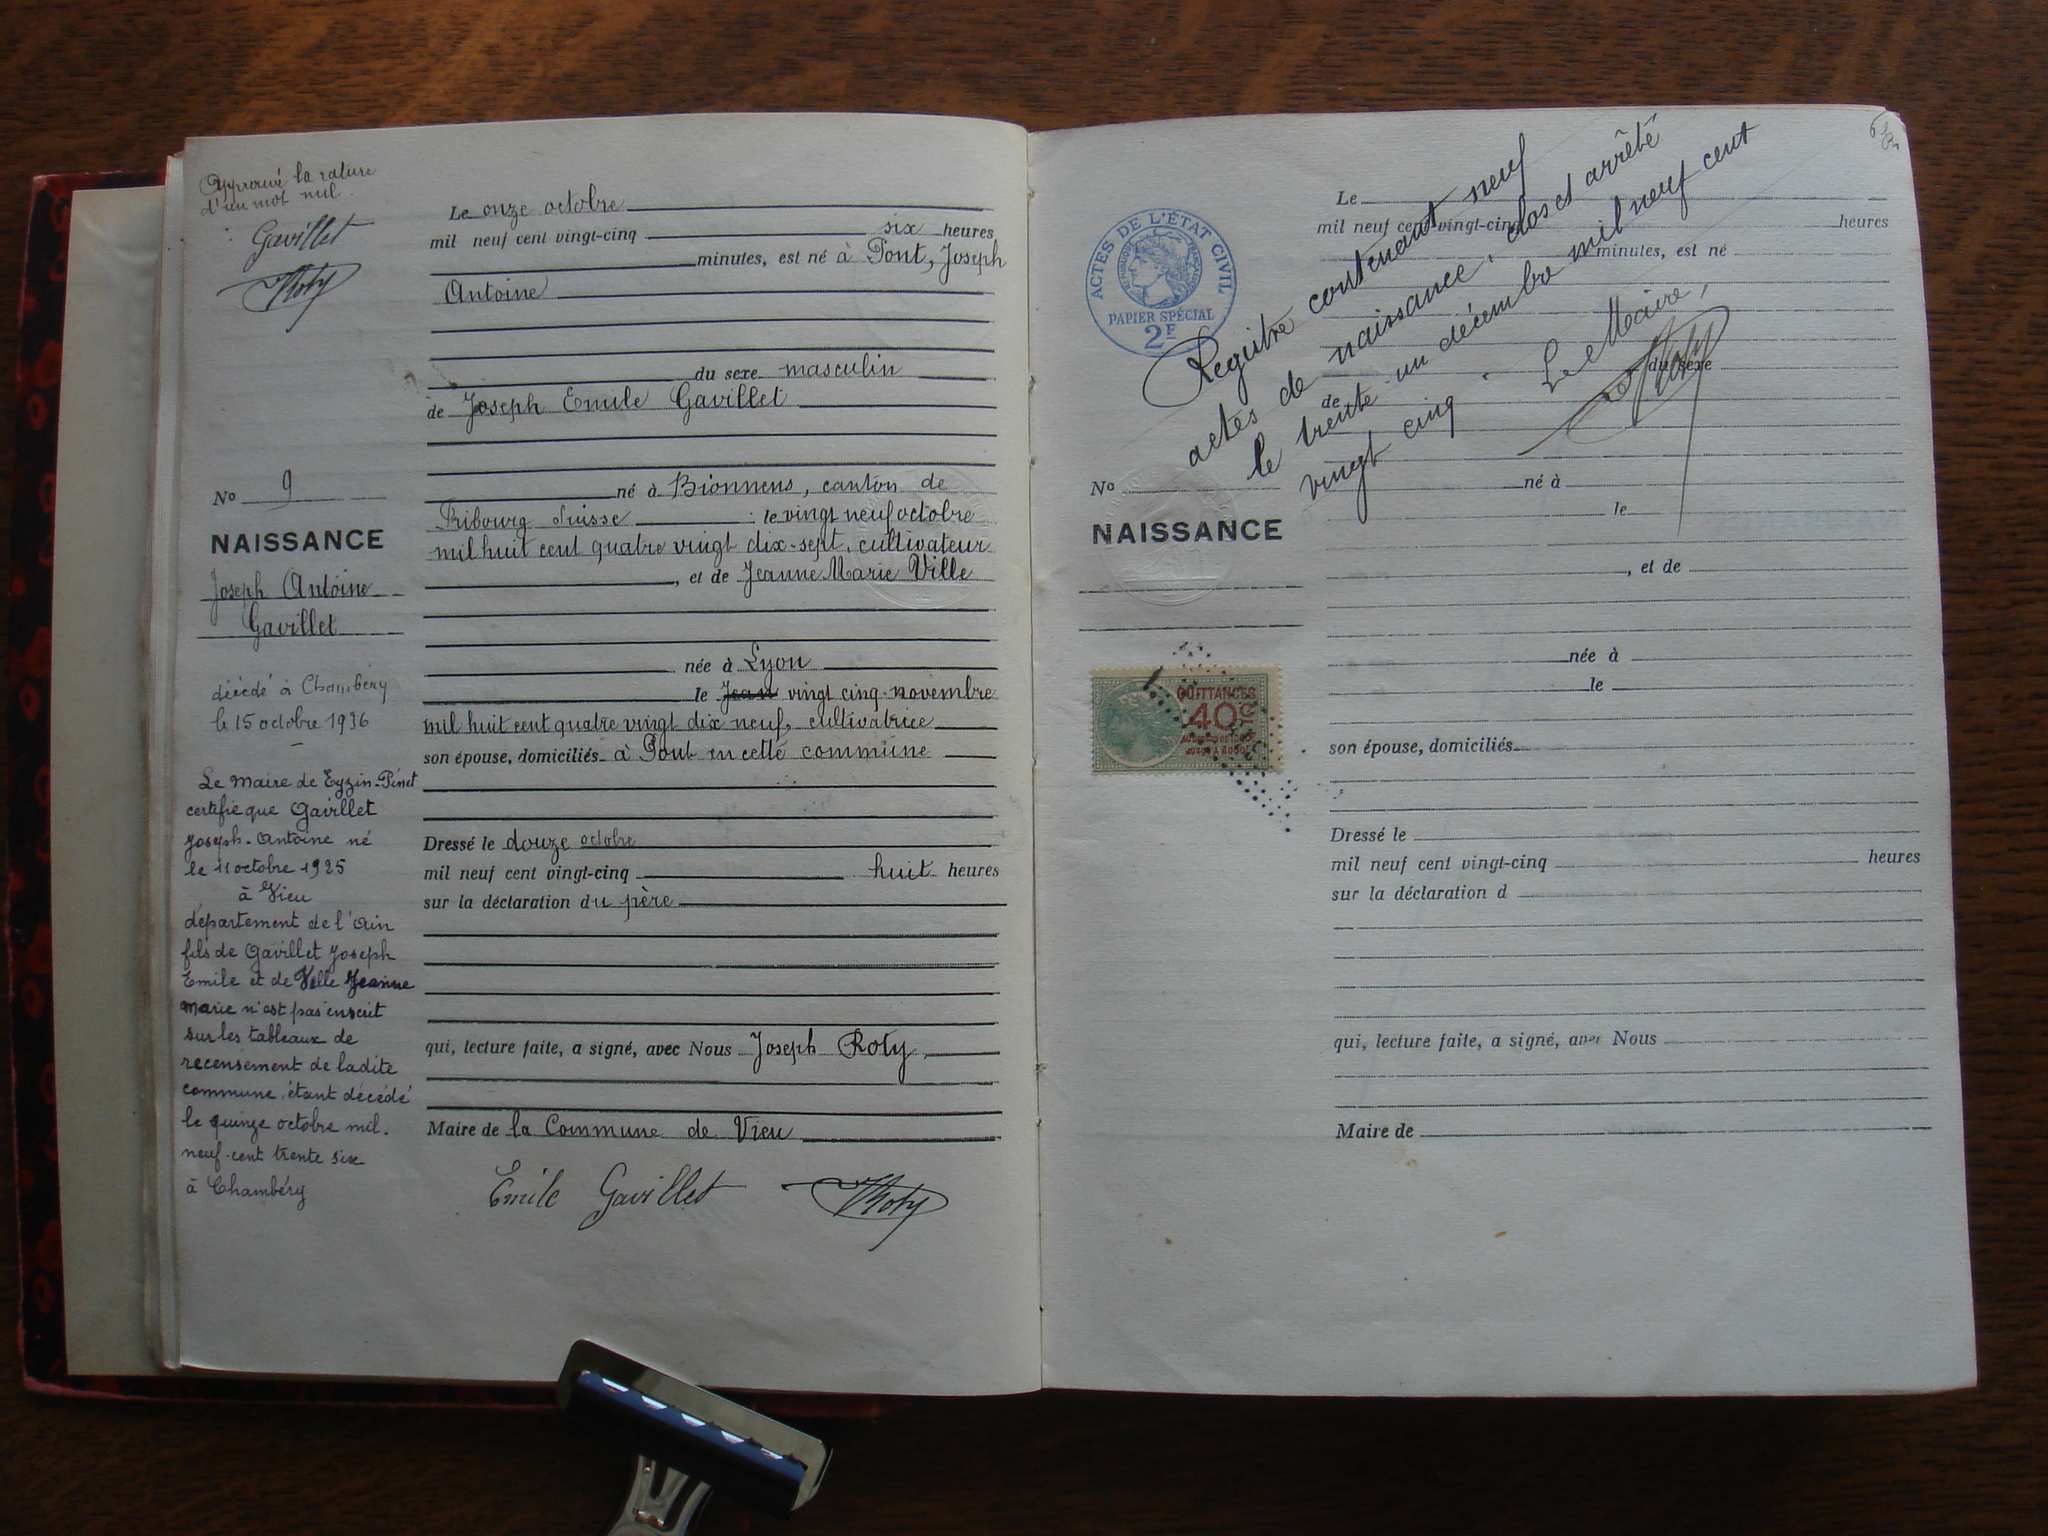 Approuvé la rature
d'un mot nul.
Gavillet
JRoty
Le onze octobre
mil neuf cent vingt-cinq six heures
minutes, est né à Pont, Joseph
Antoine
du sexe masculin
de Joseph Emile Gavillet
né à Bionnens, canton de
Fribourg Suisse le vingt neuf octobre
mil huit cent quatre vingt dix-sept, cultivateur
, et de Jeanne Marie Ville
née à Lyon
le Jean vingt cinq novembre
mil huit cent quatre vingt dix neuf, cultivatrice
son épouse, domiciliés à Pont en cette commune
Dressé le douze octobre
mil neuf cent vingt-cinq huit heures
sur la déclaration du père
qui, lecture faite, a signé, avec Nous Joseph Roty,
Maire de la Commune de Vieu
Emile Gavillet JRoty
No 9
NAISSANCE
Joseph Antoine
Gavillet
décédé à Chambéry
le 15 octobre 1936
Le Maire de Eyzin-Pinet
certifie que Gavillet
Joseph-Antoine né
le 11 octobre 1925
à Vieu
département de l'Ain
fils de Gavillet Joseph
Emile et de Ville Jeanne
Marie n'est pas inscrit
sur les tableaux de
recensement de ladite
commune, étant décédé
le quinze octobre mil.
neuf-cent trente six
à Chambéry
ACTES DE L'ÉTAT CIVIL
RÉPUBLIQUE FRANÇAISE
PAPIER SPÉCIAL
2F
Registre contenant neuf
actes de naissance, clos et arrêté
le trente-un décembre mil neuf cent
vingt cinq. Le Maire,
JRoty
Le
mil neuf cent vingt-cinq heures
minutes, est né
du sexe
de
No
né à
le
NAISSANCE
, et de
née à
le
QUITTANCES
40
son épouse, domiciliés
Dressé le
mil neuf cent vingt-cinq heures
sur la déclaration d
qui, lecture faite, a signé, avec Nous
Maire de